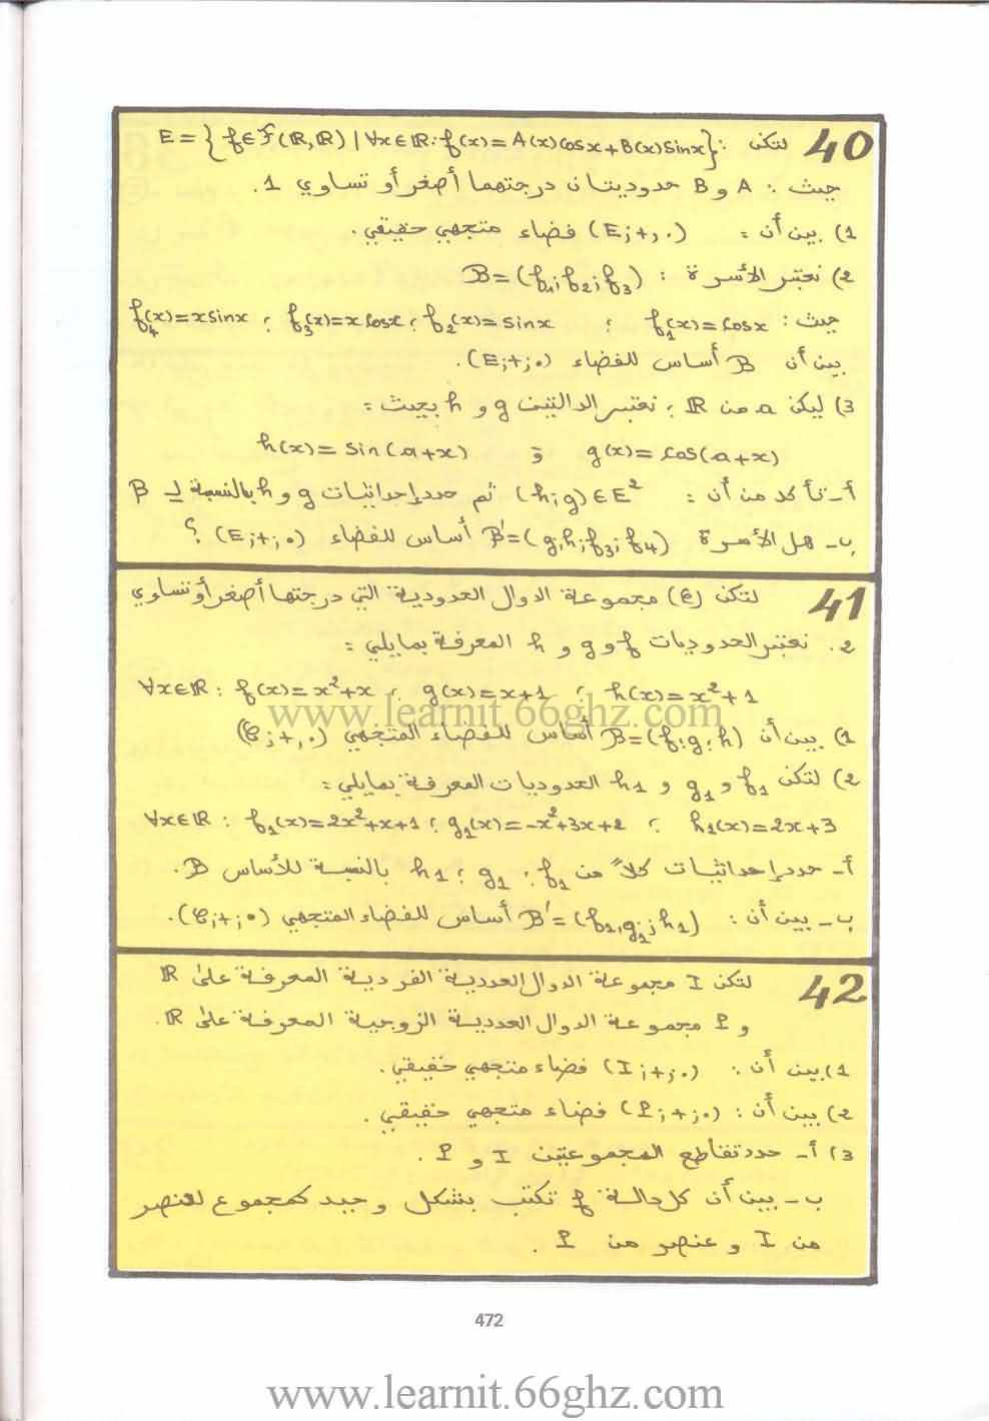 40 لتكن : E = { f ∈ F(ℝ,ℝ) | ∀x∈ℝ: f(x) = A(x)cosx + B(x)sinx }
حيث : A و B حدوديتان درجتهما أصغر أو تساوي 1.
1) بين أن : (E;+,.) فضاء متجهي حقيقي.
2) نعتبر الأسرة : B=(f₁;f₂;f₃)
حيث : f₁(x)=cosx ؛ f₂(x)=sinx ؛ f₃(x)=xcosx ؛ f₄(x)=xsinx
بين أن B أساس للفضاء (E;+;.).
3) ليكن a من ℝ ؛ نعتبر الدالتين g و h بحيث :
g(x)=cos(a+x) و h(x)=sin(a+x)
أ- تأكد من أن : (h;g)∈E² ثم حدد إحداثيات g و h بالنسبة لـ B
ب- هل الأسرة B'=(g;h;f₃;f₄) أساس للفضاء (E;+;.) ؟
41 لتكن (C) مجموعة الدوال الحدودية التي درجتها أصغر أو تساوي
2. نعتبر الحدوديات f و g و h المعرفة بمايلي :
∀x∈ℝ : f(x)=x²+x ؛ g(x)=x+1 ؛ h(x)=x²+1
www.learnit.66ghz.com
1) بين أن B=(f;g;h) أساس للفضاء المتجهي (C;+,.)
2) لتكن f₁ و g₁ و h₁ الحدوديات المعرفة بمايلي :
∀x∈ℝ : f₁(x)=2x²+x+1 ؛ g₁(x)=-x²+3x+2 ؛ h₁(x)=2x+3
أ- حدد إحداثيات كلاً من f₁ ؛ g₁ ؛ h₁ بالنسبة للأساس B.
ب- بين أن : B'=(f₁,g₁;h₁) أساس للفضاء المتجهي (C;+;.).
42 لتكن I مجموعة الدوال العددية الفردية المعرفة على ℝ
و P مجموعة الدوال العددية الزوجية المعرفة على ℝ.
1) بين أن : (I;+;.) فضاء متجهي حقيقي.
2) بين أن : (P;+;.) فضاء متجهي حقيقي.
3) أ- حدد تقاطع المجموعتين I و P .
ب- بين أن كل دالة f تكتب بشكل وحيد كمجموع لعنصر
من I و عنصر من P .
472
www.learnit.66ghz.com